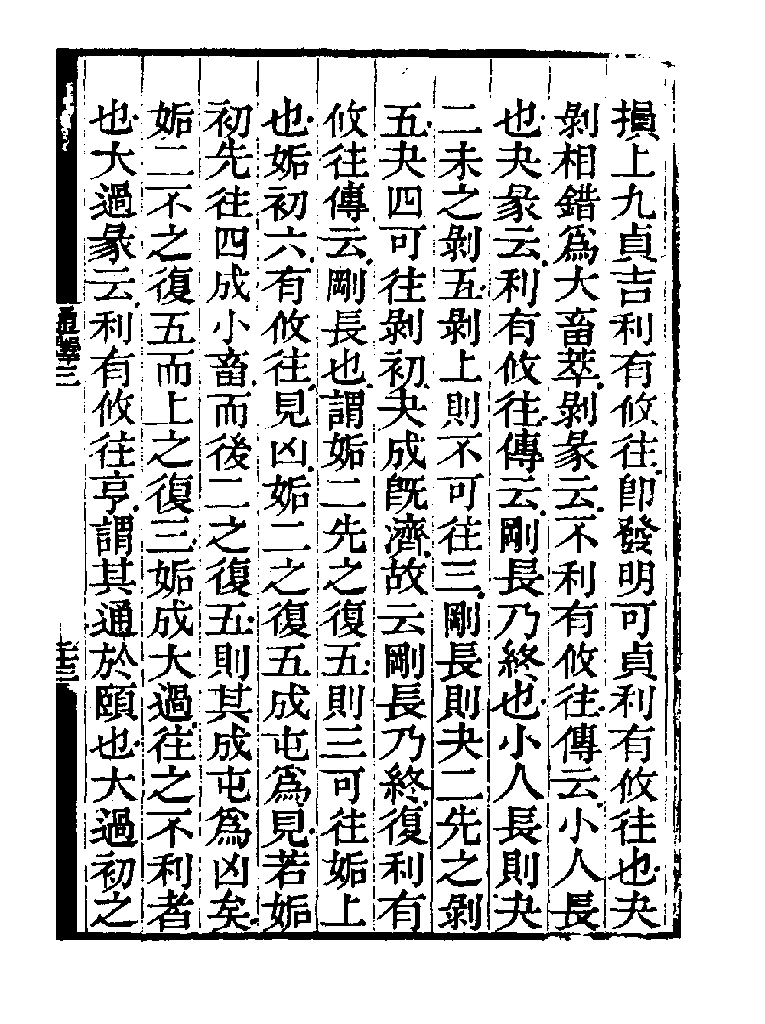 損上九貞吉利有攸往卽發明可貞利有攸往也夬
剝相錯爲大畜萃剝彖云不利有攸往傳云小人長
也夬彖云利有攸往傳云剛長乃終也小人長則夬
二未之剝五剝上則不可往三剛長則夬二先之剝
五夬四可往剝初夬成旣濟故云剛長乃終復利有
攸往傳云剛長也謂姤二先之復五則三可往姤上
也姤初六有攸往見凶姤二之復五成屯爲見若姤
初先往四成小畜而後二之復五則其成屯爲凶矣
姤二不之復五而上之復三姤成大過往之不利者
也大過彖云利有攸往亨謂其通於頤也大過初之
通釋三